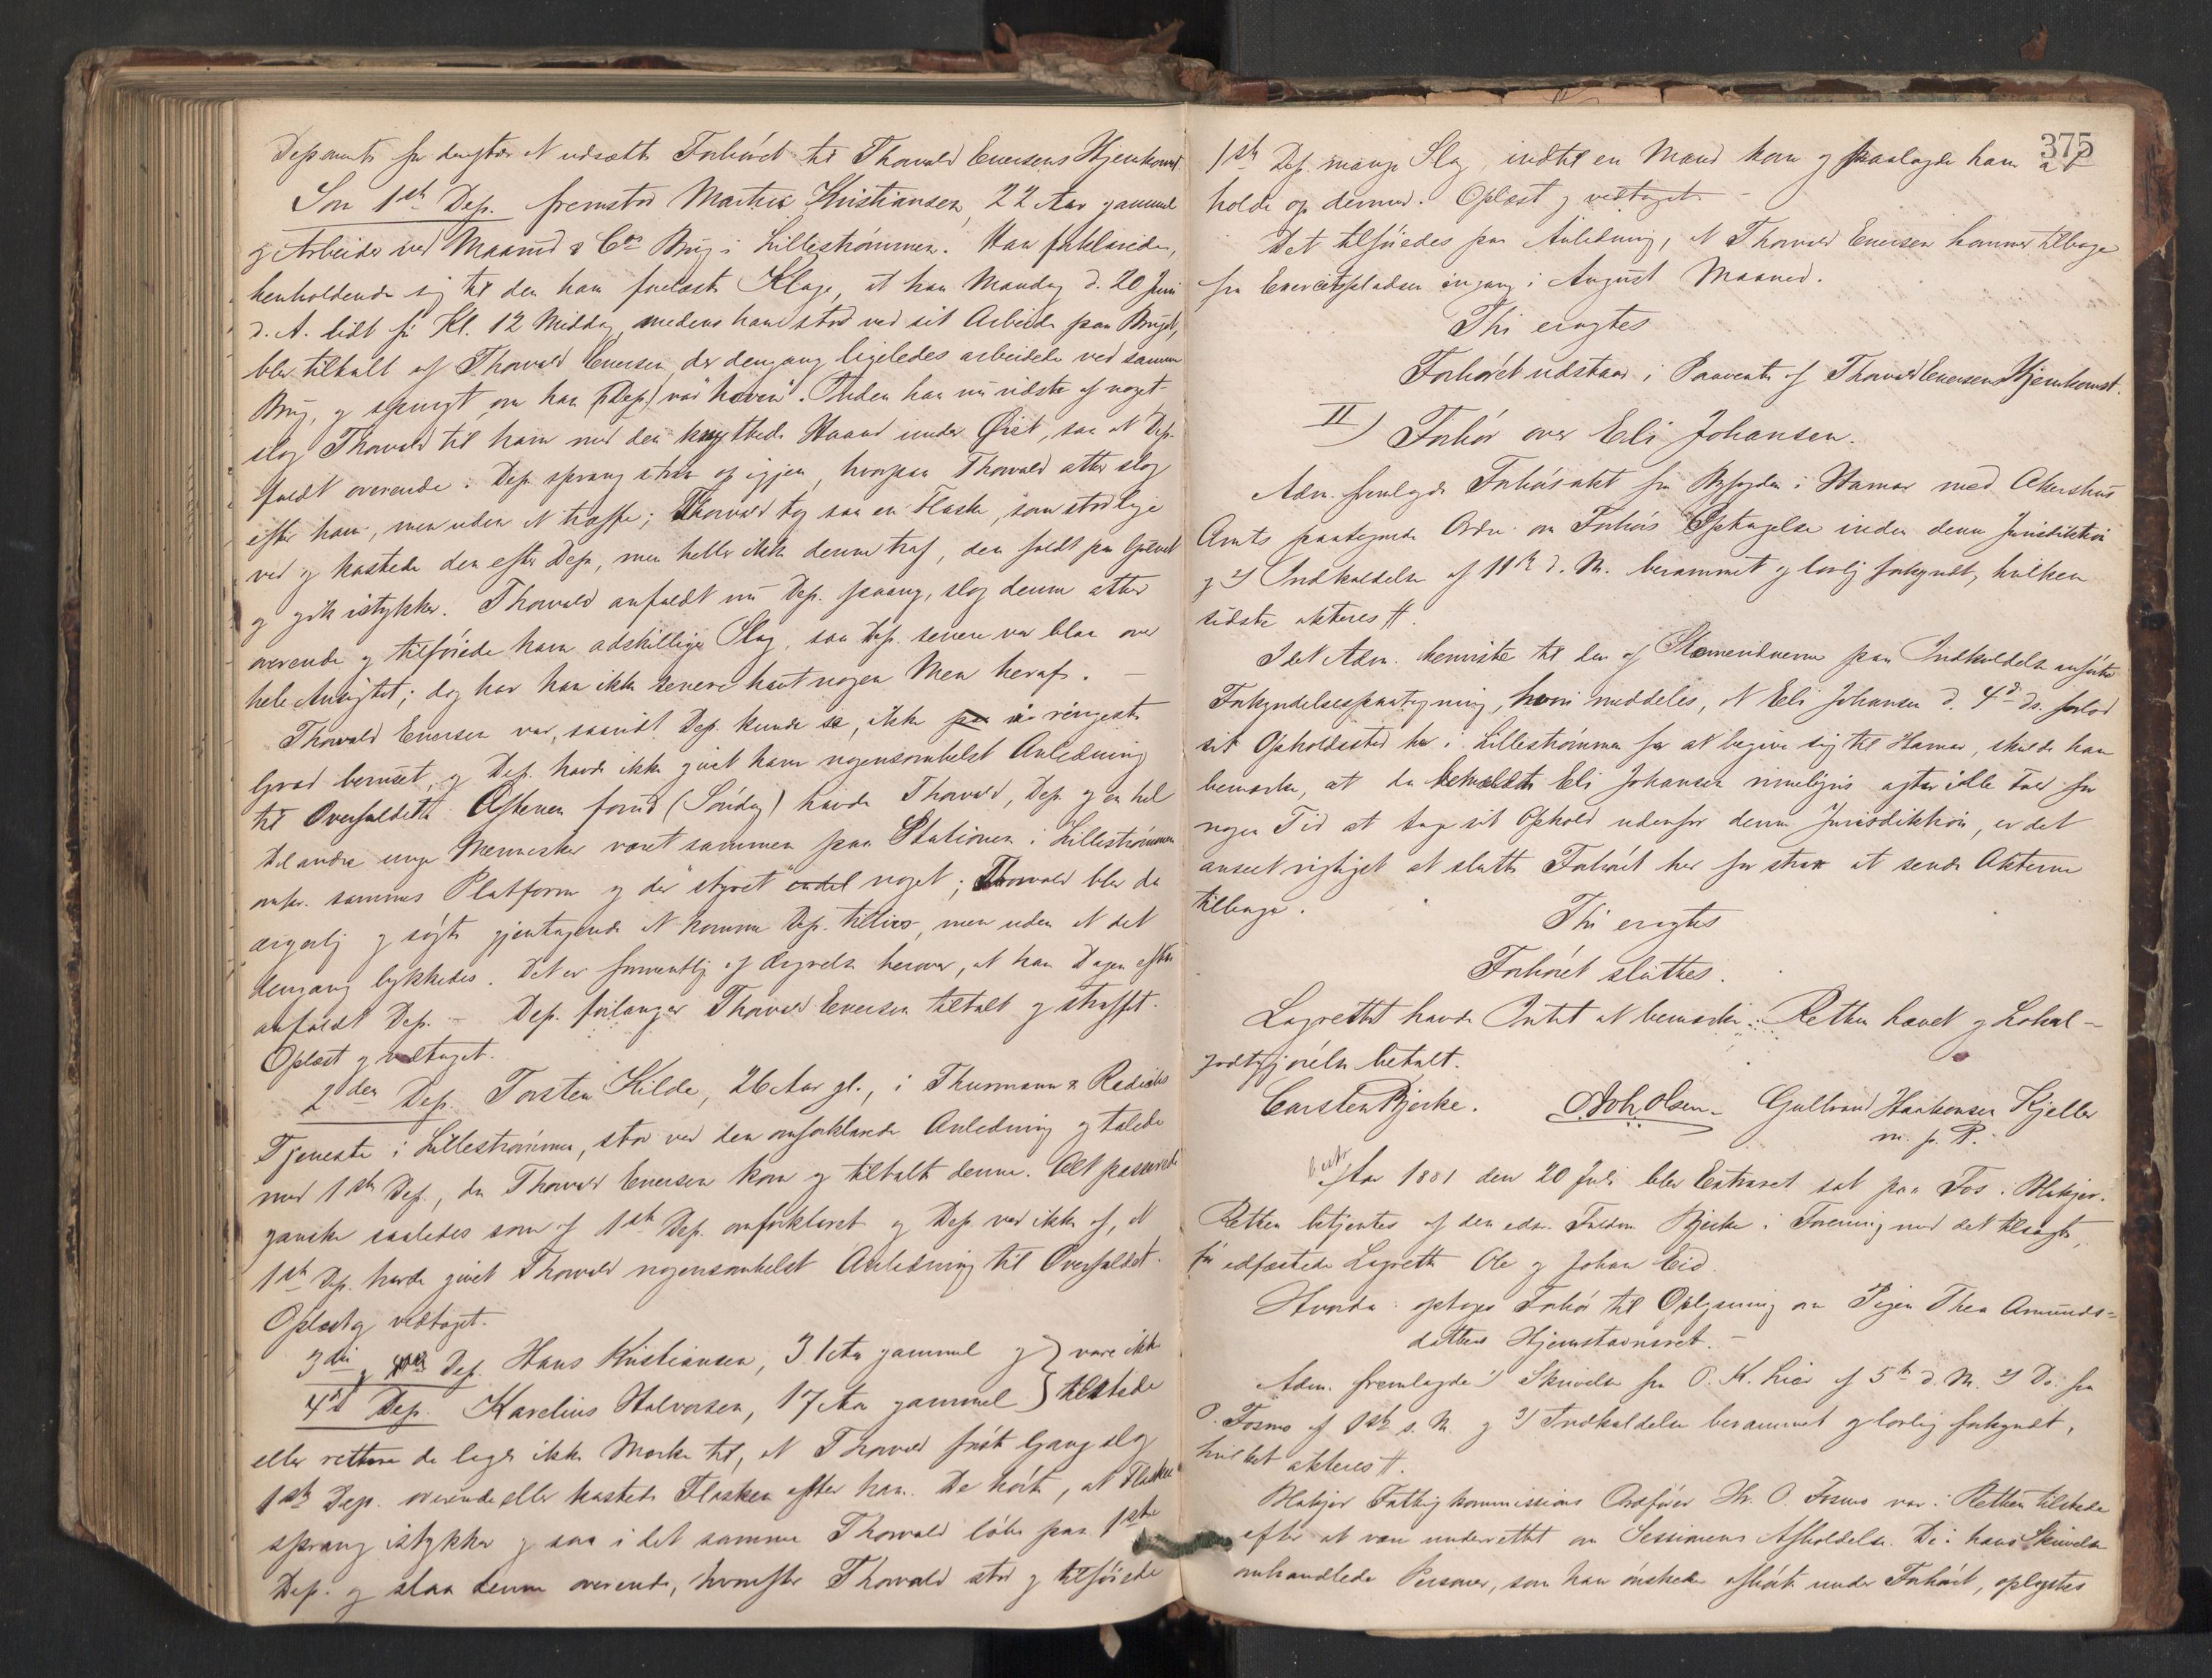 Desuagtet fandtes at udsætte Forhöret til Thorvald Enersens Hjemkomst.
Som 1ste Dep. fremstod Martin Kristiansen, 22 Aar gammel
og Arbeider ved Maarud & Co Brug i Lilleströmmen. Han forklarede,
henholdende sig til den ham forelæste Klage, at han Mandag d. 20 Juni
d. A. lidt för Kl. 12 Middag, medens han stod ved sit Arbeide paa Bruget,
blev tiltalt af Thorvald Enersen, der dengang ligeledes arbeidede ved samme
Brug, og spurgt om han (Dep.) var "hoven". Inden han nu vidste af noget
slog Thorvald til ham med den knyttede Haand under Öiet, saa at Dep.
faldt overende. Dep. sprang strax op igjen, hvorpaa Thorvald atter slog
efter ham, men uden at træffe; Thorvald tog saa en Flaske, som stod lige
ved og kastede den efter Dep., men heller ikke denne traf, den faldt paa Gulvet
og gik istykker. Thorvald anfaldt nu Dep. paany, slog denne atter
overende og tilföiede ham adskillige Slag, saa Dep. senere var blaa over
hele Ansigtet; dog har han ikke senere havt nogen Men heraf. —
Thorvald Enersen var, saavidt Dep. kunde se, ikke paa i ringeste
Grad beruset, og Dep. havde ikke givet ham nogensomhelst Anledning
til Overfaldet. Aftenen forud (Söndag) havde Thorvald, Dep. og en hel
Del andre unge Mennesker været sammen paa Stationen i Lilleströmmen
 sammes Platform og der "styret" endel noget; Thorvald blev da
ærgerlig og sögte gjentagende at komme Dep. tillivs, men uden at det
dengang lykkedes. Det er formentlig af Ærgrelse herover, at han Dagen efter
anfaldt Dep. — Dep. forlanger Thorvald Enersen tiltalt og straffet.
Oplæst og vedtaget.
2den Dep. Torsten Kilde, 26 Aar gl., i Thurmann &
Tjeneste i Lilleströmmen, stod ved den omforklarede Anledning og talede
med 1ste Dep., da Thorvald Enersen kom og tiltalte denne. Alt passerede
ganske saaledes som af 1ste Dep. omforklaret og Dep. ved ikke af, at
1ste Dep. havde givet Thorvald nogensomhelst Anledning til Overfaldet.
Oplæst og vedtaget.
3die og Dep. Hans Kristiansen, 31 Aar gammel og } vare ikke
4de Dep. Karelius Halvorsen, 17 Aar gammel } tilstede
eller rettere de lagde ikke Mærke til, at Thorvald förste Gang slog
1ste Dep. overende eller kastede Flasken efter ham. De hörte, at Flasken
sprang istykker og saa i det samme Thorvald löbe paa 1ste
Dep. og slaa denne overende, hvorefter Thorvald stod og tilföiede
375
1ste Dep. mange Slag, indtil en Mand kom og paalagde ham at
holde op dermed. Oplæst og vedtaget. —
Det tilföiedes paa Anledning, at Thorvald Enersen kommer tilbage
fra Exercerpladsen engang i August Maaned.
Thi eragtes
Forhöret udstaar i Paavente af Thorvald Enersens Hjemkomst.
II) Forhör over Eli Johansen.
Adm. fremlagde Forhörsakt fra Byfogden i Hamar med Akershus
Amts paategnede Ordre om Forhörs Optagelse inden denne Jurisdiktion
og 2) Indkaldelse af 11te d. M. berammet og lovlig forkyndt, hvilken
sidste akteres #.
Idet Adm. henviste til den af Stævnevidnerne paa Indkaldelsen anförte
Forkyndelsespaategning, hvori meddeles, at Eli Johansen d. 4de ds. forlod
sit Opholdssted her i Lilleströmmen for at begive sig til Hamar, skulde han
bemærke, at da bemeldte Eli Johansen rimeligvis agter ialfald for
nogen Tid at tage sit Ophold udenfor denne Jurisdiktion, er det
anseet rigtigst at slutte Forhöret her for strax at sende Akterne
tilbage.
Thi eragtes
Forhöret sluttes.
Lagrettet havde Intet at bemærke. Retten hævet og Lokal-
godtgjörelse betalt.
Carsten Bjerke. Joh Olsen. Gulbrand Haakonsen Kjeller
m. p. P.
Aar 1881 den 20 Juli blev Extraret sat paa Fos i Blakjer.
Retten betjentes af den edsv. Fuldm. Bjerke i Forening med det tilsagte,
för edfæstede Lagrette Ole og Johan Eid.
Hvorda: optoges Forhör til Oplysning om Pigen Thea Amunds-
datters Hjemstavnsret. —
Adm. fremlagde 1) Skrivelse fra O. K. Lier af 5te d. M. 2) Do. fra
O. Fosmo af 1ste s. M. og 3) Indkaldelse berammet og lovlig forkyndt,
hvilket akteres #.
Blakjer Fattigkommissions Ordförer Hr. O. Fosmo var i Retten tilstede
efter at være underrettet om Sessionens Afholdelse. De i hans Skrivelse
omhandlede Personer, som han önskede afhört under Forhöret, oplystes